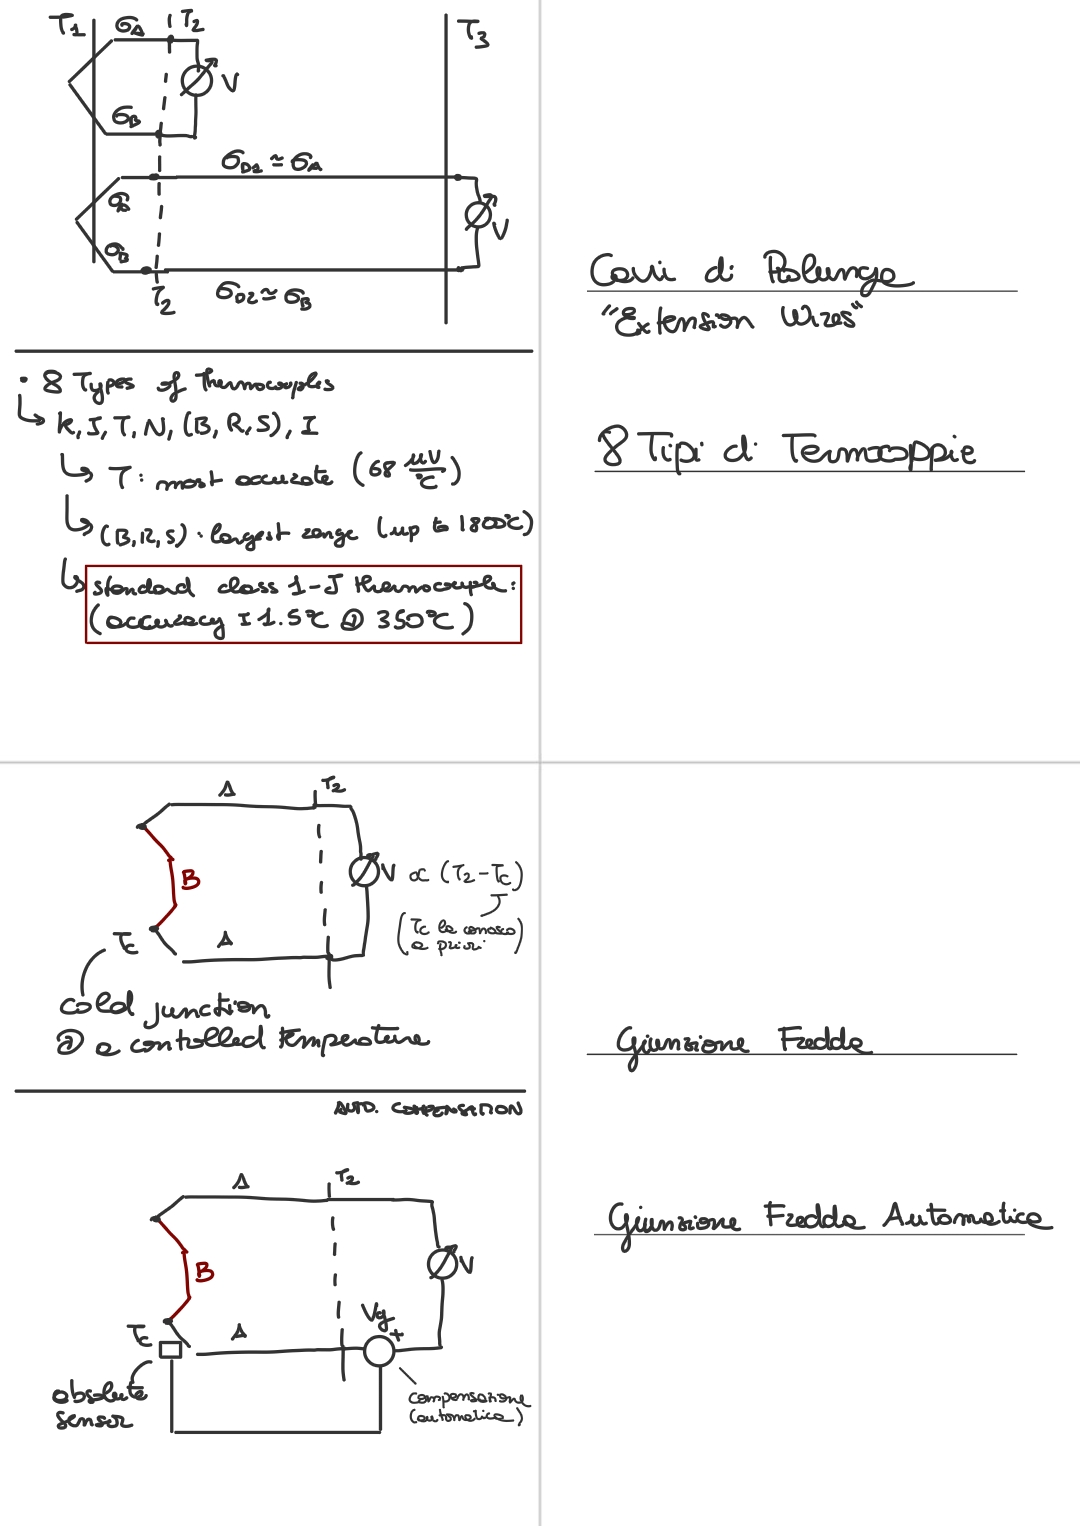 T1 σA T2 T3
V
σB
σD1 ≃ σA
σB
V
T2 σD2 ≃ σB
Cavi di Prolunga
"Extension Wires"
• 8 Types of thermocouples
↳ K, J, T, N, (B, R, S), I
↳ T: most accurate (68 μV/°C)
↳ (B, R, S): largest range (up to 1800°C)
↳ standard class 1-J thermocouple:
(accuracy ± 1.5°C @ 350°C)
8 Tipi di Termocoppie
A T2
B V ∝ (T2 - TC)
(TC la conosco
a priori)
TC A
cold junction
@ a controlled temperature
Giunzione Fredda
AUTO. COMPENSATION
A T2
B V
Vg
+
TC A
absolute
sensor
compensazione
(automatica)
Giunzione Fredda Automatica